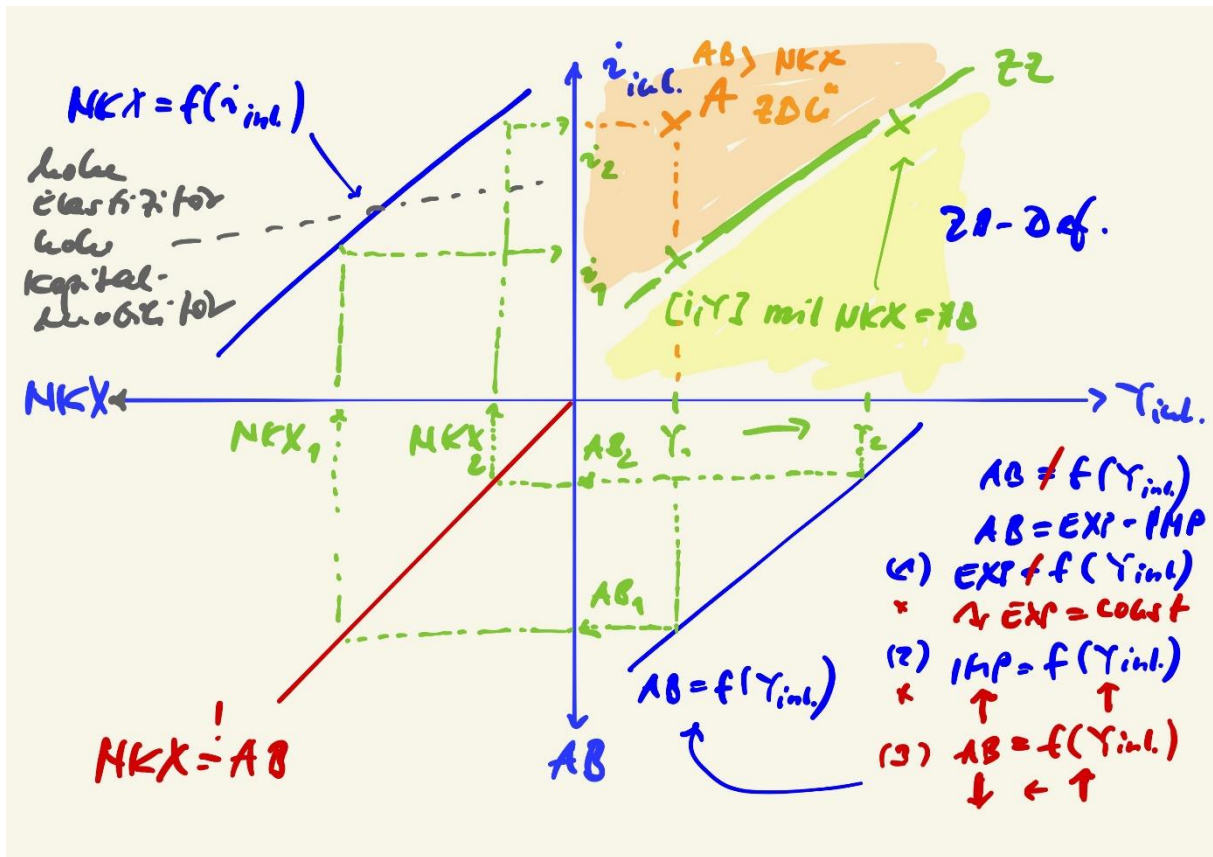 NKX = f(i inl.)
hohe
Elastizität
hohe
Kapital-
mobilität
i inl.
AB > NKX
A ZBÜ
ZZ
i2
i1
ZB-Def.
[i,Y] mit NKX = AB
NKX
Y inl.
NKX1
NKX2
AB2
Y1
→
Y2
AB1
AB ≠ f(Y inl.)
AB = EXP - IMP
(1) EXP ≠ f(Y inl.)
EXP = const
(2) IMP = f(Y inl.)
↑ ↑
(3) AB = f(Y inl.)
↓ ← ↑
AB = f(Y inl.)
NKX = AB
!
AB